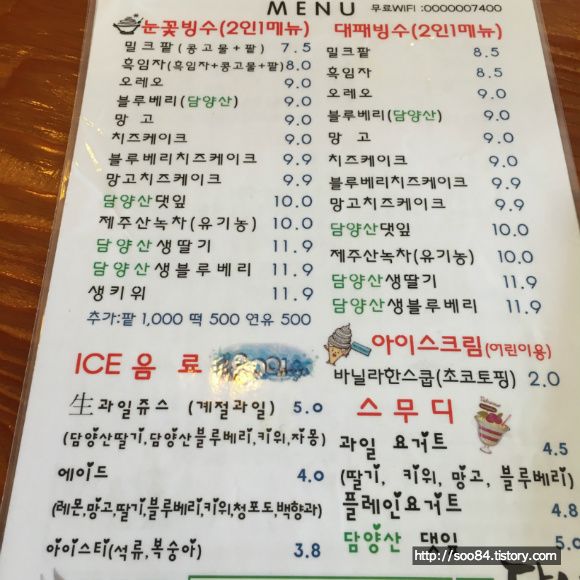 MENU
무료WIFI :0000007400
눈꽃빙수(2인1메뉴)
밀크팥(콩고물+팥) 7.5
흑임자(흑임자+콩고물+팥) 8.0
오레오 9.0
블루베리(담양산) 9.0
망 고 9.0
치즈케이크 9.0
블루베리치즈케이크 9.9
망고치즈케이크 9.9
담양산댓잎 10.0
제주산녹차(유기농) 10.0
담양산생딸기 11.9
담양산생블루베리 11.9
생키위 11.9
추가:팥 1,000 떡 500 연유 500
대패빙수(2인1메뉴)
밀크팥 8.5
흑임자 8.5
오레오 9.0
블루베리(담양산) 9.0
망고 9.0
치즈케이크 9.0
블루베리치즈케이크 9.9
망고치즈케이크 9.9
담양산댓잎 10.0
제주산녹차(유기농) 10.0
담양산생딸기 11.9
담양산생블루베리 11.9
ICE음 료
生과일쥬스 (계절과일) 5.0
(담양산딸기,담양산블루베리,키위,자몽)
에이드 4.0
(레몬,망고,딸기,블루베리,키위,청포도,백향과)
아이스티(석류,복숭아) 3.8
아이스크림(어린이용)
바닐라한스쿱(초코토핑) 2.0
스무디
과일 요거트 4.5
(딸기, 키위, 망고, 블루베리)
플레인요거트 4.8
담양산 댓잎 5.0
http://soo84.tistory.com